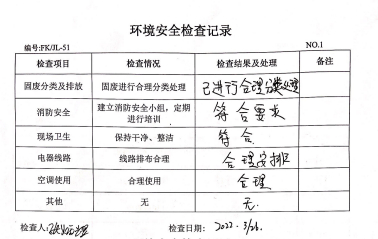 环境安全检查记录
编号:FK/JL-51 NO.1
检查项目 检查情况 检查结果及处理 备注
固废分类及排放 固废进行合理分类处理 已进行合理分类处理
消防安全 建立消防安全小组，定期进行培训 符合要求
现场卫生 保持干净、整洁 符合
电器线路 线路排布合理 合理安排
空调使用 合理使用 合理
其他 无 无.
检查人: 检查日期: 2022.3/26.